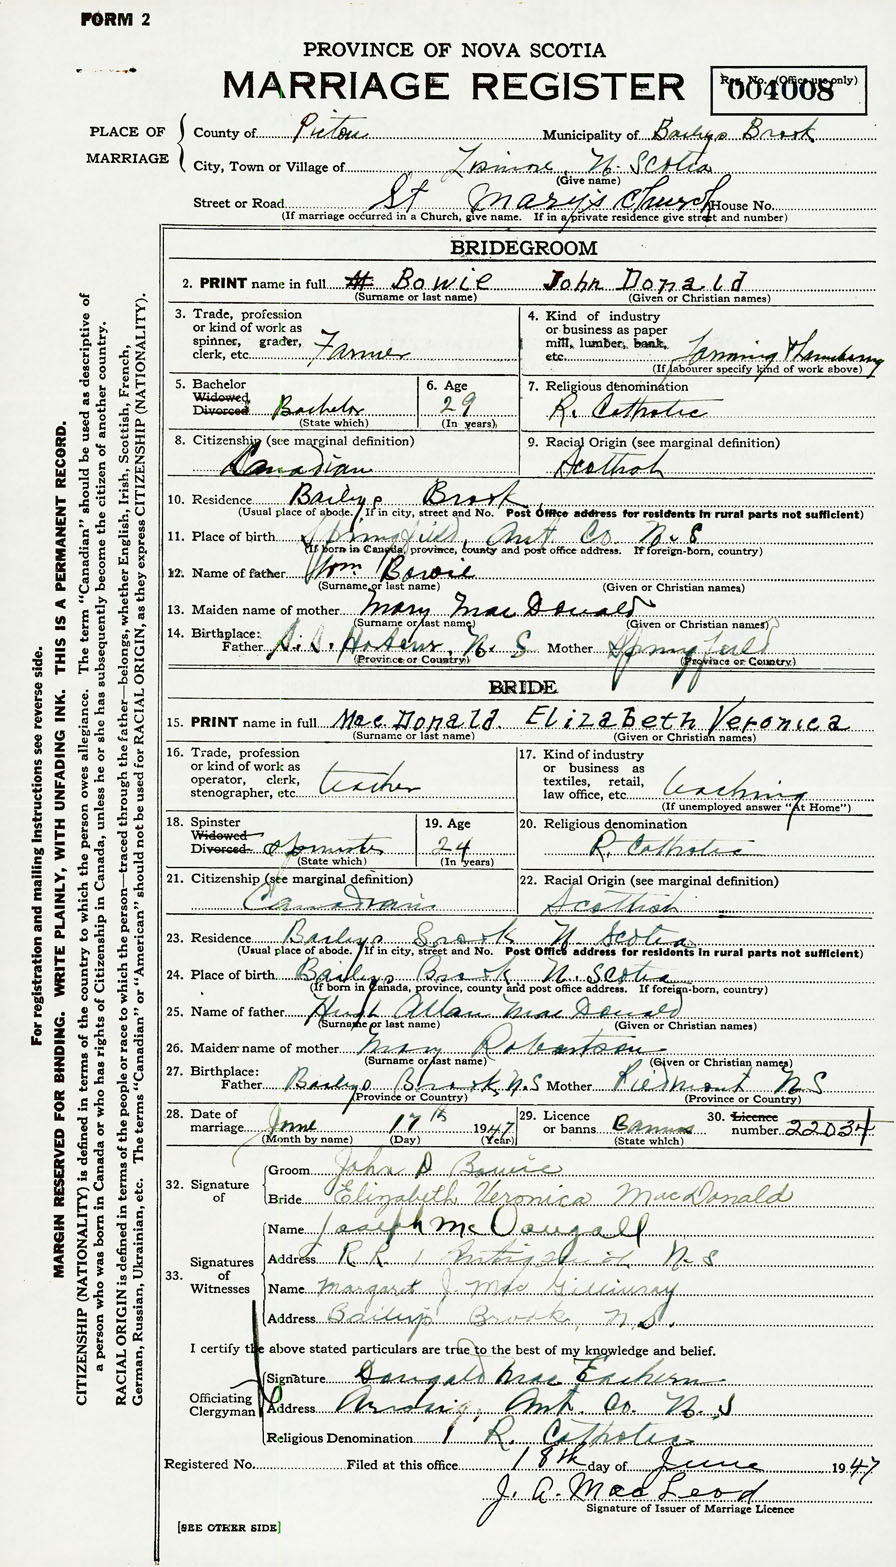 FORM 2
PROVINCE OF NOVA SCOTIA
MARRIAGE REGISTER
Reg. No. (Office use only)
004008
PLACE OF MARRIAGE
County of Pictou Municipality of Baileys Brook
City, Town or Village of Lismore, N. Scotia
(Give name)
Street or Road St Mary's Church House No.
(If marriage occurred in a Church, give name. If in a private residence give street and number)
BRIDEGROOM
2. PRINT name in full Bowie John Donald
(Surname or last name) (Given or Christian names)
3. Trade, profession or kind of work as spinner, grader, clerk, etc. Farmer
4. Kind of industry or business as paper mill, lumber, bank, etc. Farming & Lumbering
(If labourer specify kind of work above)
5. Bachelor Widowed Divorced Bachelor
(State which)
6. Age 29
(In years)
7. Religious denomination R. Catholic
8. Citizenship (see marginal definition) Canadian
9. Racial Origin (see marginal definition) Scottish
10. Residence Baileys Brook
(Usual place of abode. If in city, street and No. Post Office address for residents in rural parts not sufficient)
11. Place of birth Springfield, Ant. Co. N.S
(If born in Canada, province, county and post office address. If foreign-born, country)
12. Name of father Wm. Bowie
(Surname or last name) (Given or Christian names)
13. Maiden name of mother Mary MacDonald
(Surname or last name) (Given or Christian names)
14. Birthplace:
Father N. S Mother Springfield
(Province or Country) (Province or Country)
BRIDE
15. PRINT name in full MacDonald. Elizabeth Veronica
(Surname or last name) (Given or Christian names)
16. Trade, profession or kind of work as operator, clerk, stenographer, etc. teacher
17. Kind of industry or business as textiles, retail, law office, etc. teaching
(If unemployed answer "At Home")
18. Spinster Widowed Divorced Spinster
(State which)
19. Age 24
(In years)
20. Religious denomination R. Catholic
21. Citizenship (see marginal definition) Canadian
22. Racial Origin (see marginal definition) Scottish
23. Residence Baileys Brook N. Scotia
(Usual place of abode. If in city, street and No. Post Office address for residents in rural parts not sufficient)
24. Place of birth Baileys Brook N. Scotia
(If born in Canada, province, county and post office address. If foreign-born, country)
25. Name of father Hugh Allan MacDonald
(Surname or last name) (Given or Christian names)
26. Maiden name of mother Mary Robertson
(Surname or last name) (Given or Christian names)
27. Birthplace:
Father Baileys Brook, N.S Mother Piedmont N S
(Province or Country) (Province or Country)
28. Date of marriage June 17th 1947
(Month by name) (Day) (Year)
29. Licence or banns Banns
(State which)
30. Licence number 22034
32. Signature of
Groom John D Bowie
Bride Elizabeth Veronica MacDonald
33. Signatures of Witnesses
Name Joseph McDougall
Address R.R. 1 Antigonish N.S
Name Margaret J. MacGillivray
Address Baileys Brook, N.S.
I certify the above stated particulars are true to the best of my knowledge and belief.
Officiating Clergyman
Signature Dougald MacEachern
Address Arisaig, Ant. Co. N.S
Religious Denomination R. Catholic
Registered No. Filed at this office 18th day of June 1947
J. A. MacLeod
Signature of Issuer of Marriage Licence
[SEE OTHER SIDE]
For registration and mailing instructions see reverse side.
MARGIN RESERVED FOR BINDING. WRITE PLAINLY, WITH UNFADING INK. THIS IS A PERMANENT RECORD.
CITIZENSHIP (NATIONALITY) is defined in terms of the country to which the person owes allegiance. The term "Canadian" should be used as descriptive of
a person who was born in Canada or who has rights of Citizenship in Canada, unless he or she has subsequently become the citizen of another country.
RACIAL ORIGIN is defined in terms of the people or race to which the person—traced through the father—belongs, whether English, Irish, Scottish, French,
German, Russian, Ukrainian, etc. The terms "Canadian" or "American" should not be used for RACIAL ORIGIN, as they express CITIZENSHIP (NATIONALITY).